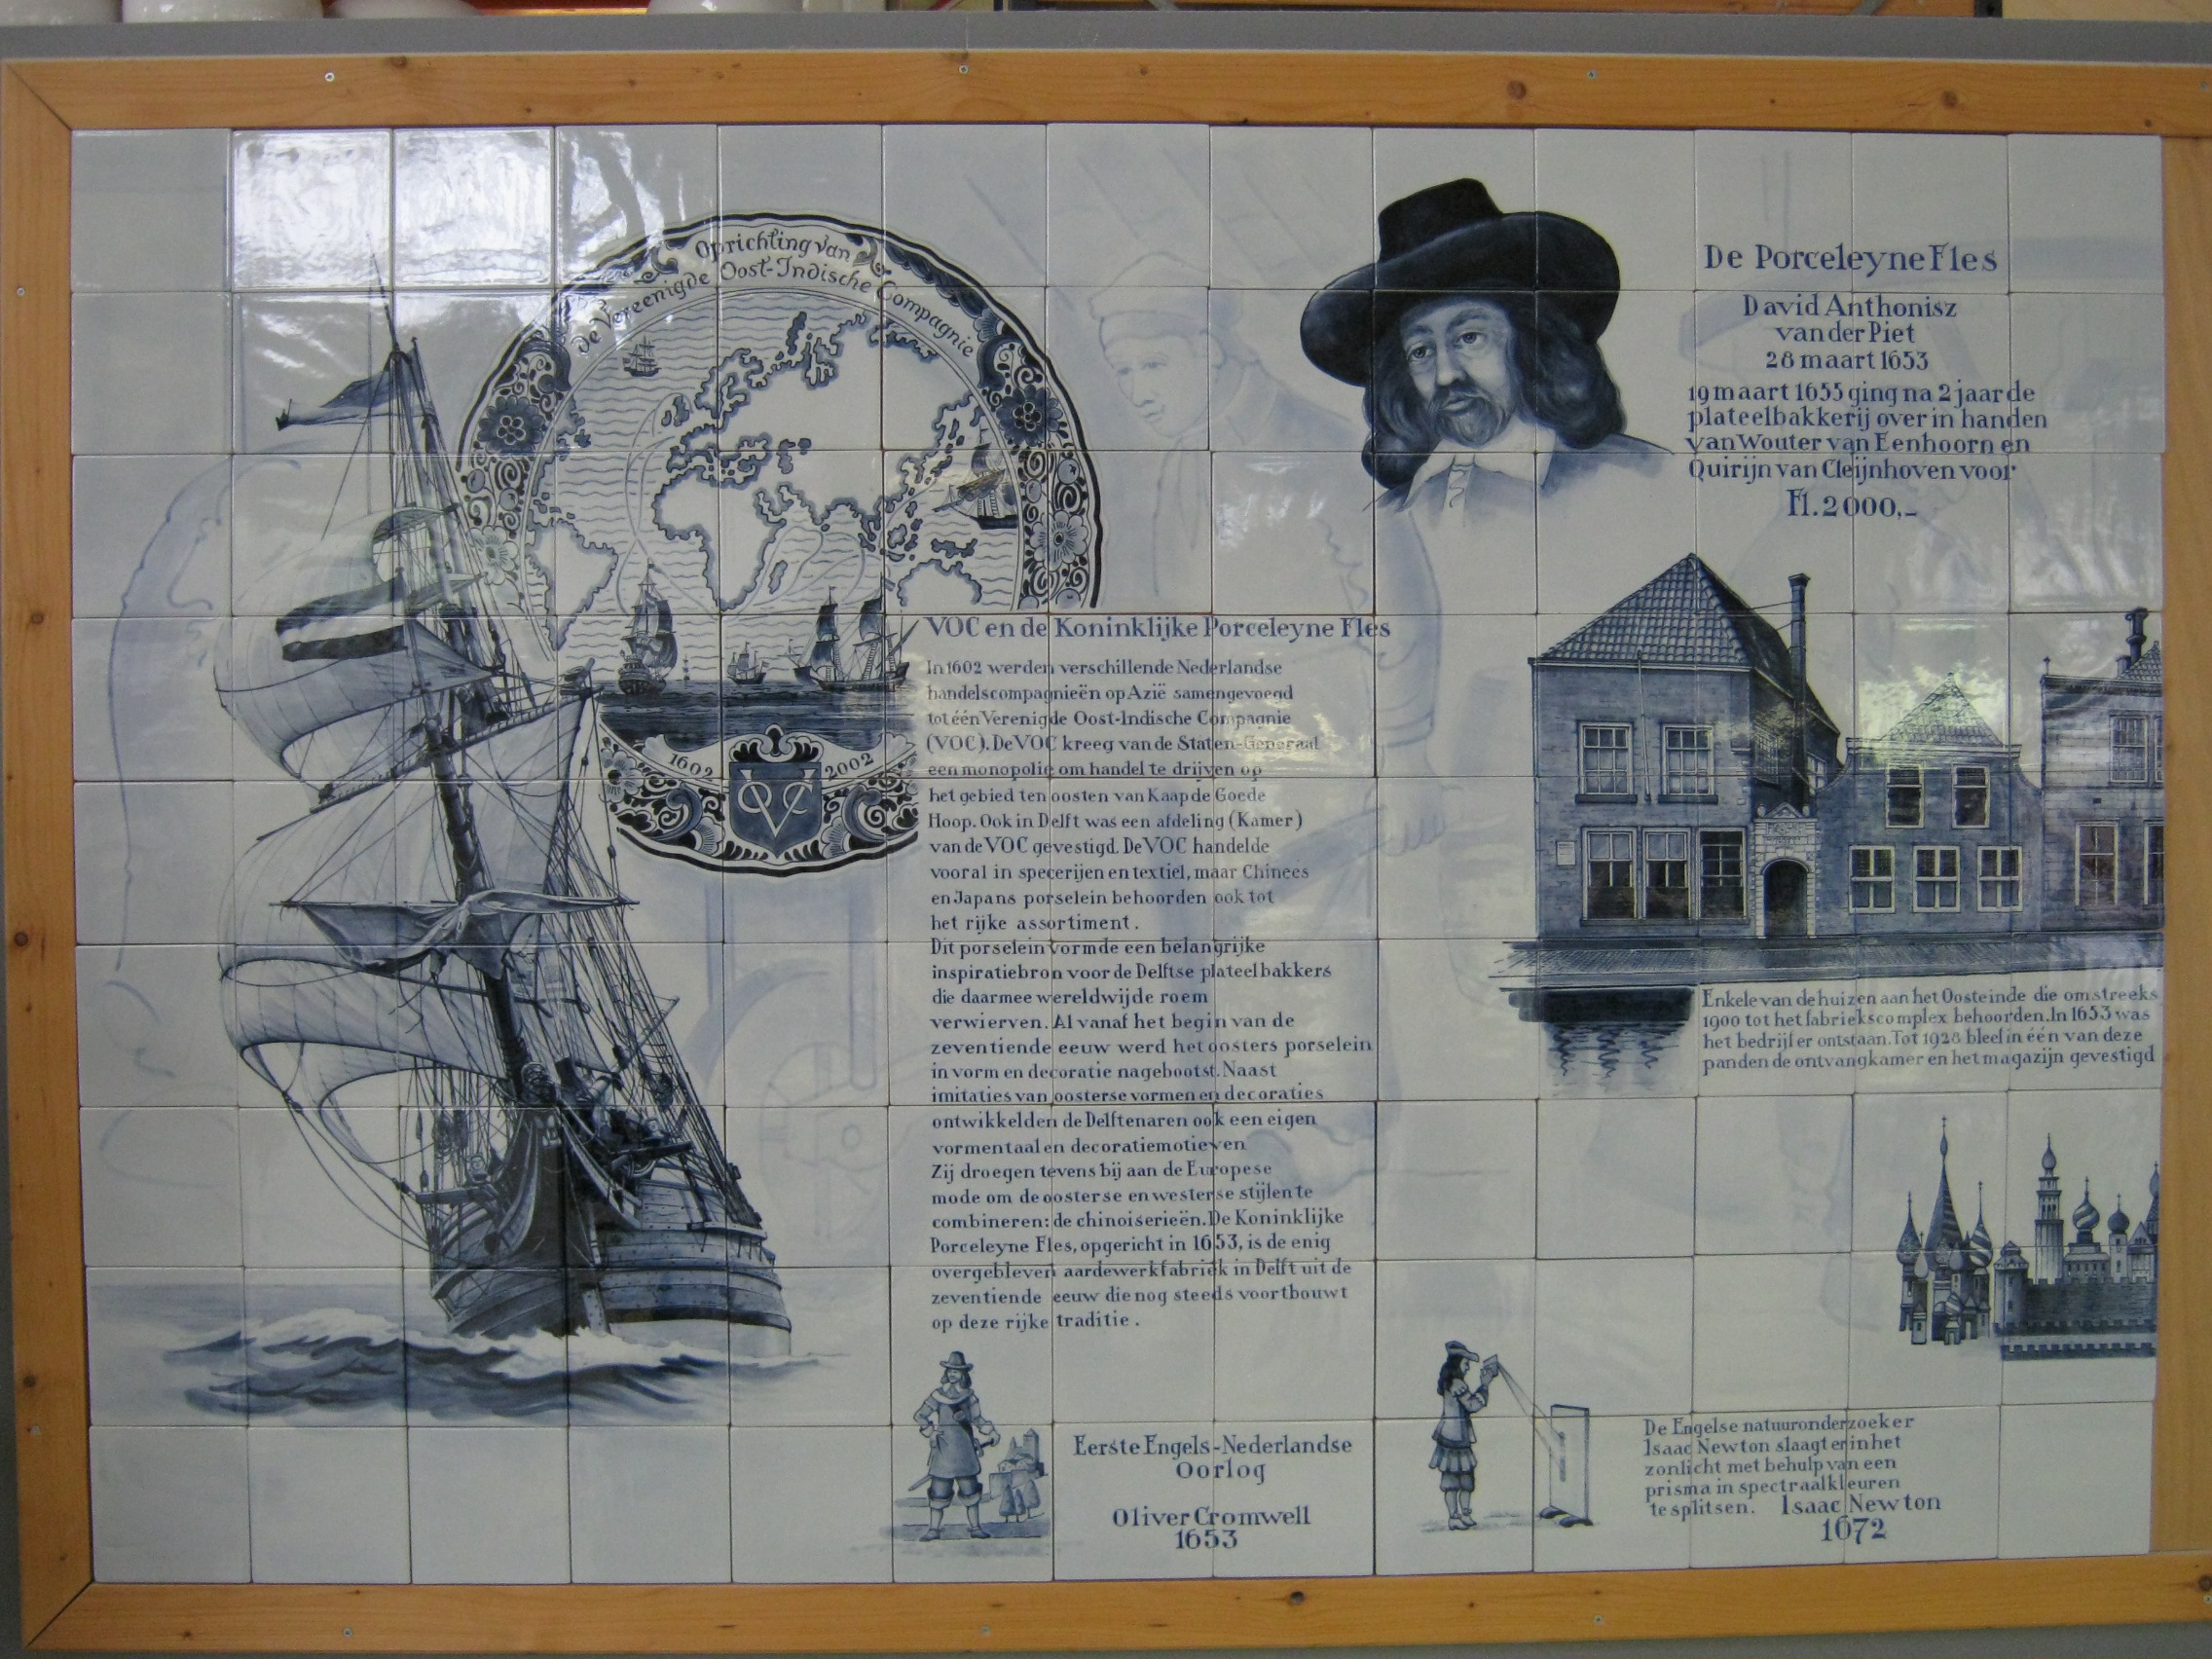 Oprichting van
de Vereenigde Oost-Indische Compagnie
1602
2002
VOC
VOC en de Koninklijke Porceleyne Fles
In 1602 werden verschillende Nederlandse
handelscompagnieën op Azië samengevoegd
tot één Verenigde Oost-Indische Compagnie
(VOC). De VOC kreeg van de Staten-Generaal
een monopolie om handel te drijven op
het gebied ten oosten van Kaap de Goede
Hoop. Ook in Delft was een afdeling (Kamer)
van de VOC gevestigd. De VOC handelde
vooral in specerijen en textiel, maar Chinees
en Japans porselein behoorden ook tot
het rijke assortiment.
Dit porselein vormde een belangrijke
inspiratiebron voor de Delftse plateelbakkers
die daarmee wereldwijde roem
verwierven. Al vanaf het begin van de
zeventiende eeuw werd het oosters porselein
in vorm en decoratie nagebootst. Naast
imitaties van oosterse vormen en decoraties
ontwikkelden de Delftenaren ook een eigen
vormentaal en decoratiemotieven
Zij droegen tevens bij aan de Europese
mode om de oosterse en westerse stijlen te
combineren: de chinoiserieën. De Koninklijke
Porceleyne Fles, opgericht in 1653, is de enig
overgebleven aardewerkfabriek in Delft uit de
zeventiende eeuw die nog steeds voortbouwt
op deze rijke traditie.
De Porceleyne Fles
David Anthonisz
van der Piet
28 maart 1653
19 maart 1655 ging na 2 jaar de
plateelbakkerij over in handen
van Wouter van Eenhoorn en
Quirijn van Cleijnhoven voor
Fl. 2000,-
Enkele van de huizen aan het Oosteinde die omstreeks
1900 tot het fabriekscomplex behoorden. In 1653 was
het bedrijf er ontstaan. Tot 1928 bleef in één van deze
panden de ontvangkamer en het magazijn gevestigd
Eerste Engels-Nederlandse
Oorlog
Oliver Cromwell
1653
De Engelse natuuronderzoeker
Isaac Newton slaagt er in het
zonlicht met behulp van een
prisma in spectraalkleuren
te splitsen. Isaac Newton
1672